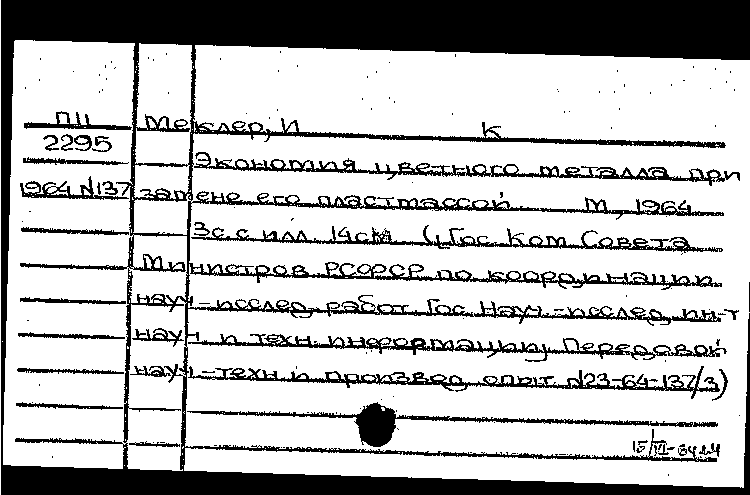 П11 Меклер, И К
2295 Экономия цветного металла при
1964 №137 замене его пластмассой. М, 1964
3с. с илл. 14см (Гос. Ком. Совета
Министров РСФСР по координации
науч-исслед. работ. Гос. Науч.-исслед. ин-т
науч. и техн. информации. Передовой
науч-техн. и производ. опыт. №23-64-137/3)
15/VII-64